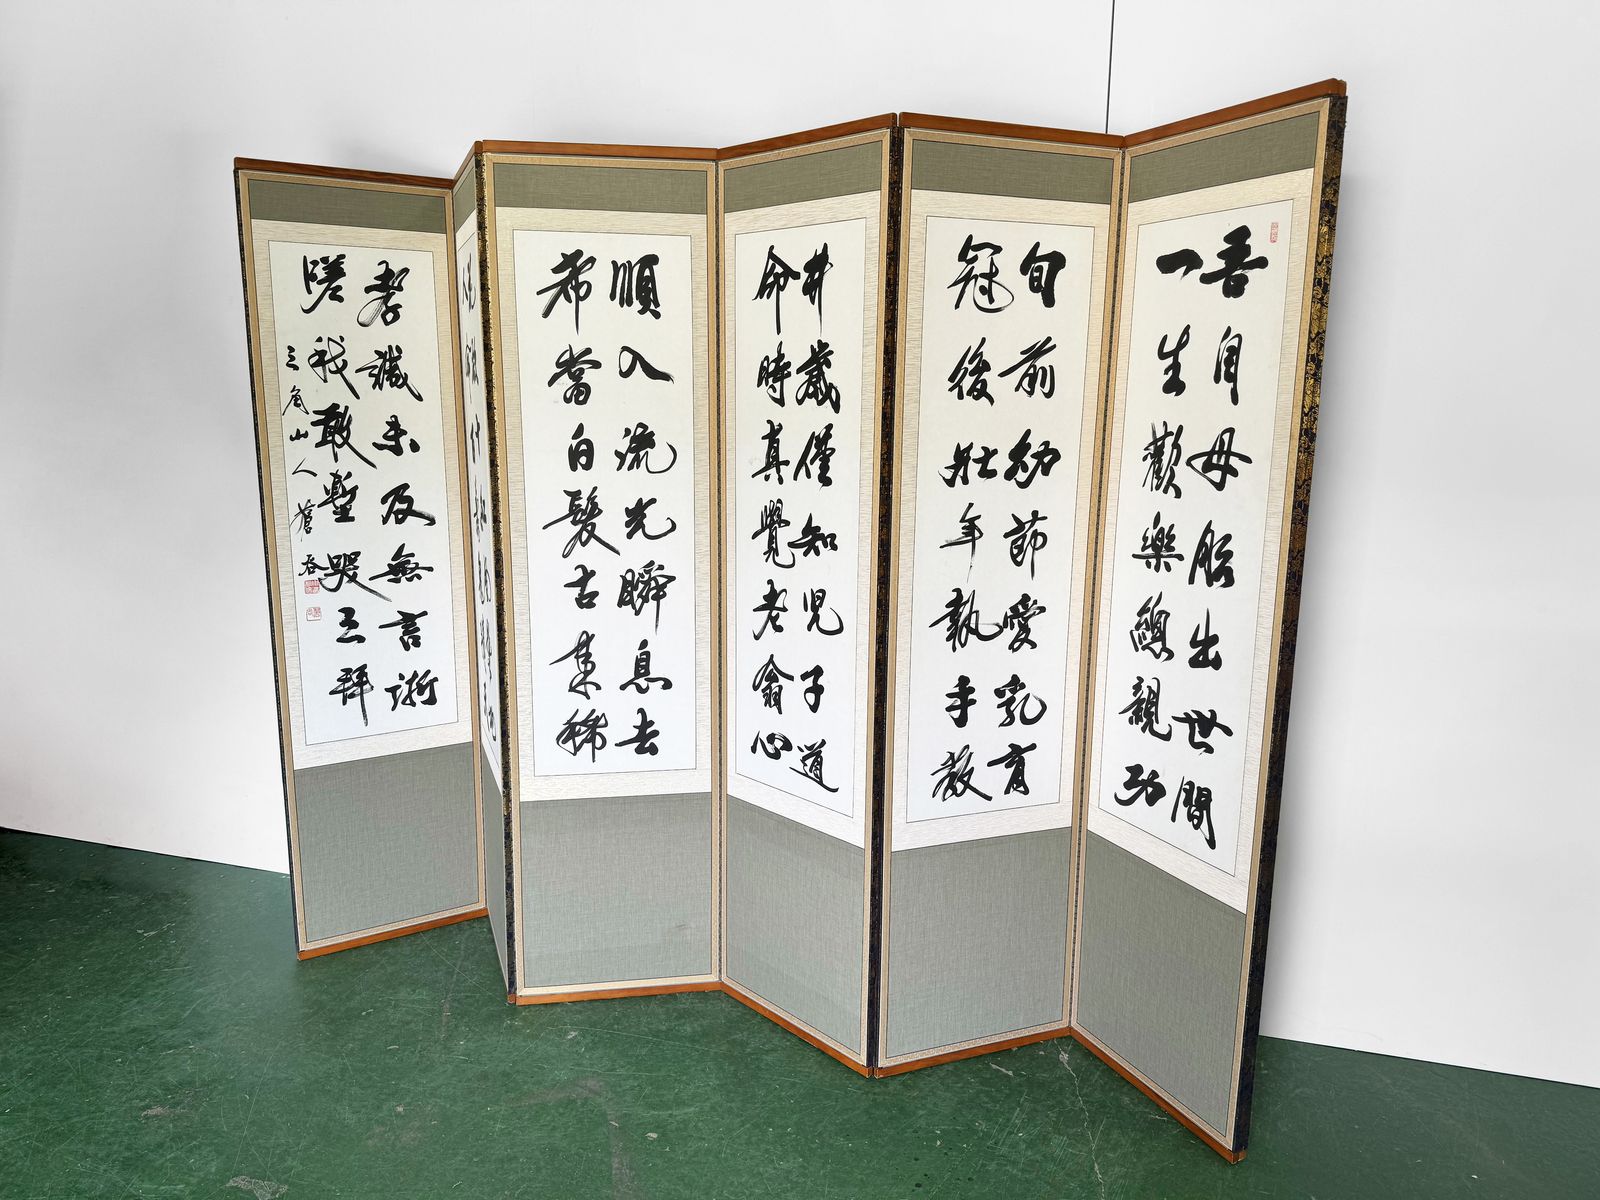 吾自母胎出世間
一生歡樂總親功
旬前幼節愛乳育
冠後壯年執手教
井歲僅知児子道
命時真覺老翁心
順入流光瞬息去
希當白髮古來稀
孝誠未及無言
嗟我敢慙哭三拜
三角山人蒼谷